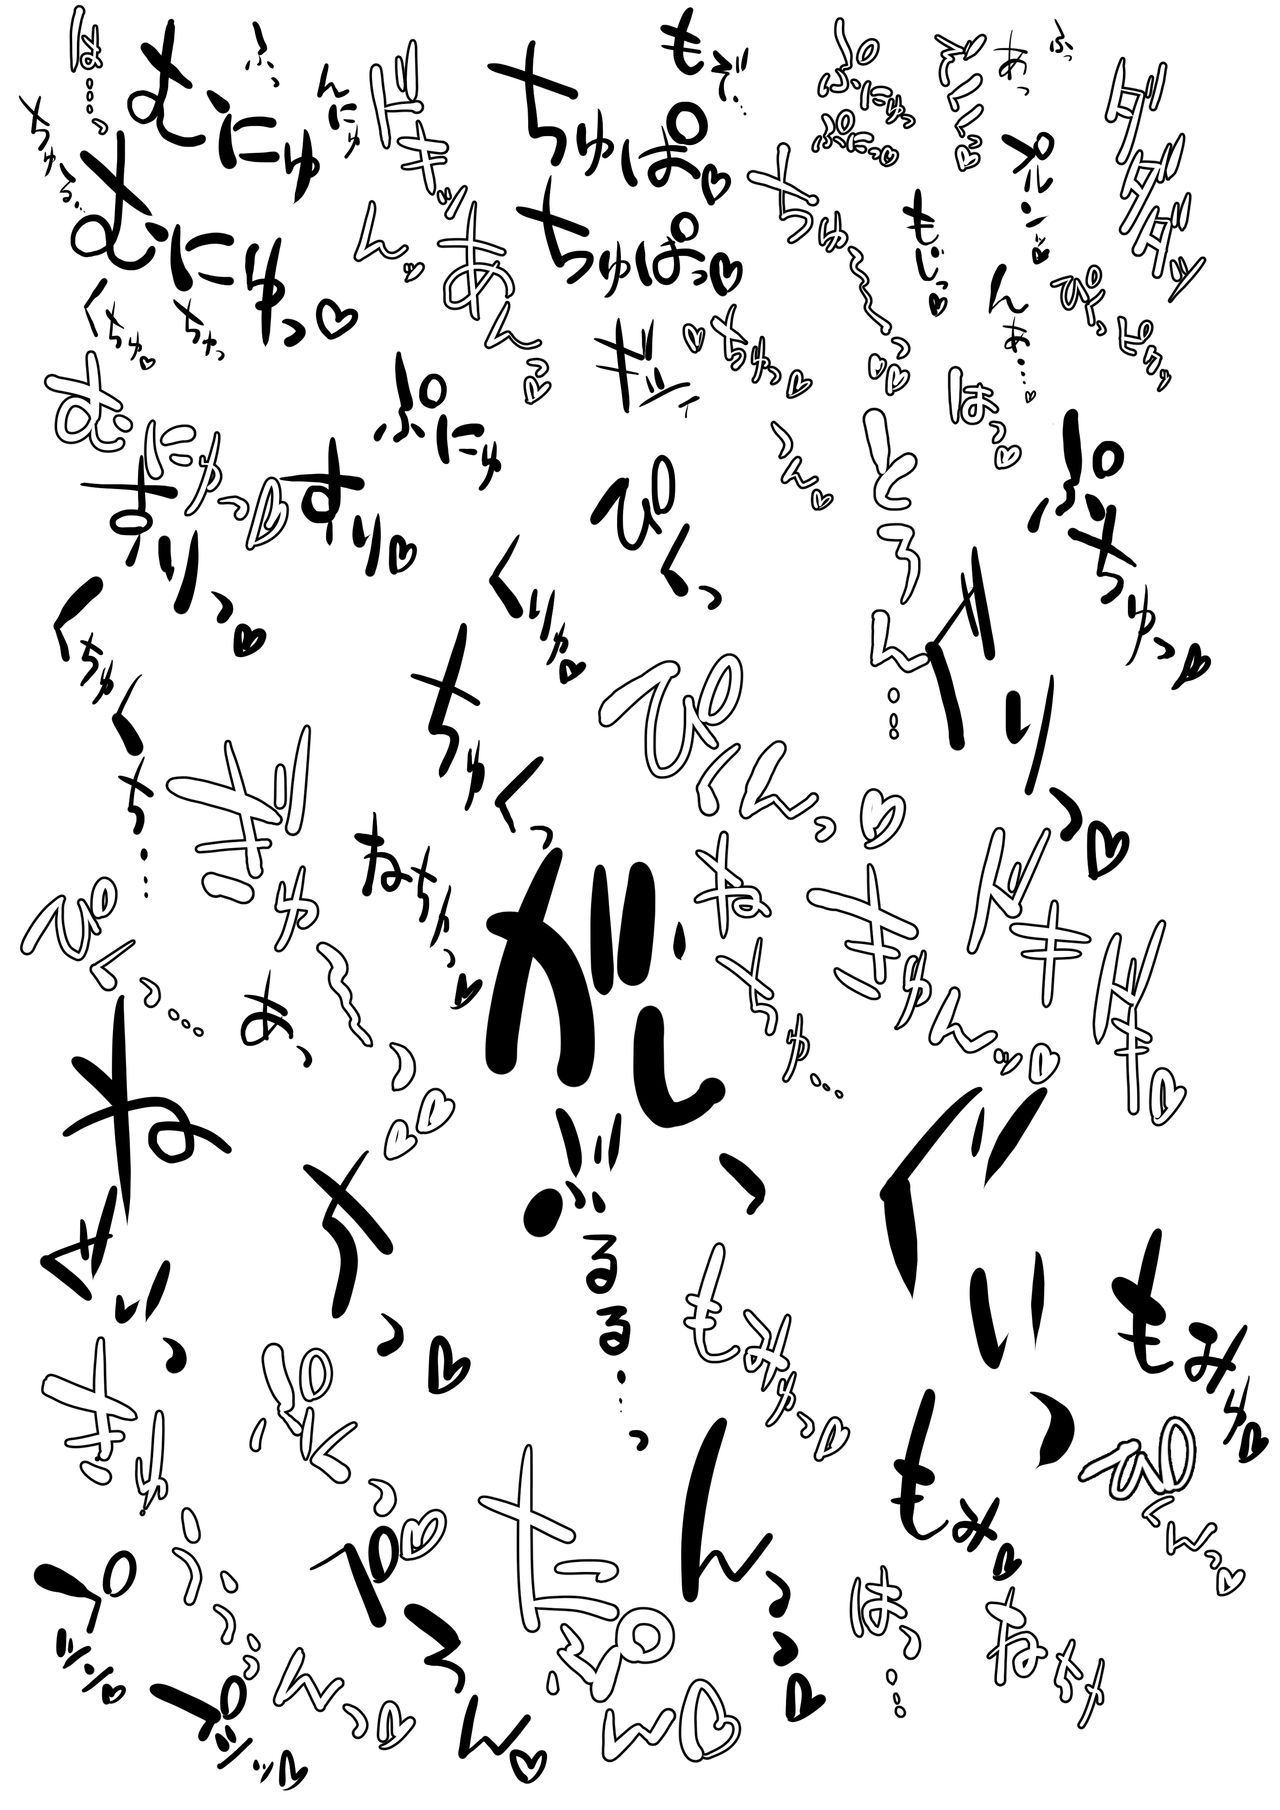 は…っ
むにゅ
ふ
んにゅ
ドキッ
ちゅぱ♡
もぞ…
ぷにゅっ
ぷにっ♡
あっ
ふ
ダダダッ
ちゅる…
むにゅっ♡
んッ
あんっ♡
ちゅぱっ♡
ちゅ〜〜っ♡♡
もじっ♡
プルンッ♡
んぁ…♡
ぴっ
ピクッ
くちゅ♡
ちゅっ
むにゅっ♡
ぷにゅ
♡ちゅっ♡
はっ♡
すりっ♡
すり♡
ぴくっ
うん♡
とろん…
ぷちゅっ♡
くちゅ
くち…
くりゅ♡
ちゅくっ
ぴくんっ♡
ぐりっ♡
ぎゅ〜っ♡♡
ねちゅっ♡
ねちゅ…
きゅんッ♡
ドキドキ♡
ぴくっ…
あっ
がしっ
ぶるる…っ
ぐいっ
もみゅっ♡
もみゅ♡
もみ♡
ぷくっ♡
んっっ♡
ぴくんっ♡
はっ…
ねちゃ
ぺろん♡
たぷん♡